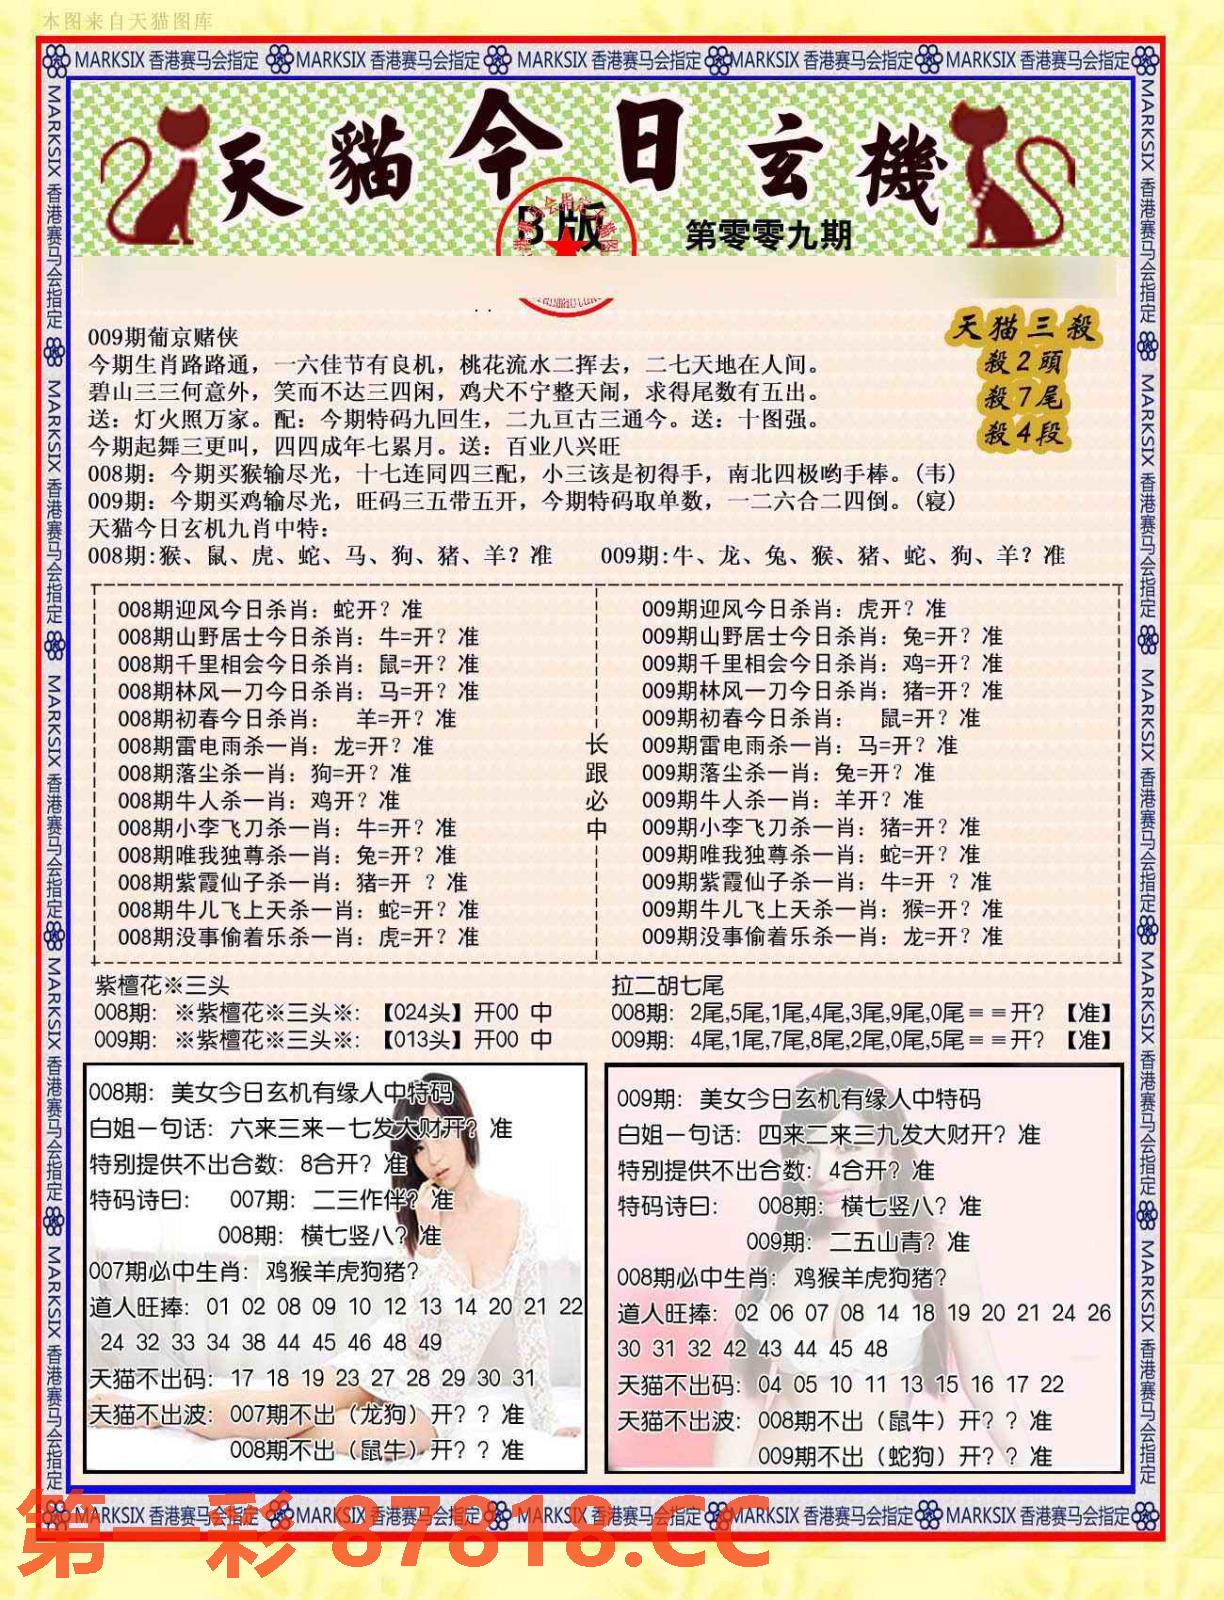 本图来自天猫图库
MARKSIX 香港赛马会指定 MARKSIX 香港赛马会指定 MARKSIX 香港赛马会指定 MARKSIX 香港赛马会指定 MARKSIX 香港赛马会指定
MARKSIX 香港赛马会指定 MARKSIX 香港赛马会指定 MARKSIX 香港赛马会指定 MARKSIX 香港赛马会指定 MARKSIX 香港赛马会指定
MARKSIX 香港赛马会指定 MARKSIX 香港赛马会指定 MARKSIX 香港赛马会指定 MARKSIX 香港赛马会指定 MARKSIX 香港赛马会指定
天貓今日玄機
B版
第零零九期
天猫三殺
殺2頭
殺7尾
殺4段
009期葡京赌侠
今期生肖路路通，一六佳节有良机，桃花流水二挥去，二七天地在人间。
碧山三三何意外，笑而不达三四闲，鸡犬不宁整天闹，求得尾数有五出。
送：灯火照万家。配：今期特码九回生，二九亘古三通今。送：十图强。
今期起舞三更叫，四四成年七累月。送：百业八兴旺
008期：今期买猴输尽光，十七连同四三配，小三该是初得手，南北四极哟手棒。(韦)
009期：今期买鸡输尽光，旺码三五带五开，今期特码取单数，一二六合二四倒。(寝)
天猫今日玄机九肖中特：
008期:猴、鼠、虎、蛇、马、狗、猪、羊？准 009期:牛、龙、兔、猴、猪、蛇、狗、羊？准
008期迎风今日杀肖：蛇开？准
008期山野居士今日杀肖：牛=开？准
008期千里相会今日杀肖：鼠=开？准
008期林风一刀今日杀肖：马=开？准
008期初春今日杀肖： 羊=开？准
008期雷电雨杀一肖：龙=开？准
008期落尘杀一肖：狗=开？准
008期牛人杀一肖：鸡开？准
008期小李飞刀杀一肖：牛=开？准
008期唯我独尊杀一肖：兔=开？准
008期紫霞仙子杀一肖：猪=开 ？准
008期牛儿飞上天杀一肖：蛇=开？准
008期没事偷着乐杀一肖：虎=开？准
长跟必中
009期迎风今日杀肖：虎开？准
009期山野居士今日杀肖：兔=开？准
009期千里相会今日杀肖：鸡=开？准
009期林风一刀今日杀肖：猪=开？准
009期初春今日杀肖： 鼠=开？准
009期雷电雨杀一肖：马=开？准
009期落尘杀一肖：兔=开？准
009期牛人杀一肖：羊开？准
009期小李飞刀杀一肖：猪=开？准
009期唯我独尊杀一肖：蛇=开？准
009期紫霞仙子杀一肖：牛=开 ？准
009期牛儿飞上天杀一肖：猴=开？准
009期没事偷着乐杀一肖：龙=开？准
紫檀花※三头
008期：※紫檀花※三头※：【024头】开00 中
009期：※紫檀花※三头※：【013头】开00 中
拉二胡七尾
008期：2尾,5尾,1尾,4尾,3尾,9尾,0尾＝＝开？【准】
009期：4尾,1尾,7尾,8尾,2尾,0尾,5尾＝＝开？【准】
008期：美女今日玄机有缘人中特码
白姐一句话：六来三来一七发大财开？准
特别提供不出合数：8合开？准
特码诗曰： 007期：二三作伴？准
008期：横七竖八？准
007期必中生肖：鸡猴羊虎狗猪？
道人旺捧：01 02 08 09 10 12 13 14 20 21 22
24 32 33 34 38 44 45 46 48 49
天猫不出码：17 18 19 23 27 28 29 30 31
天猫不出波：007期不出（龙狗）开？？准
008期不出（鼠牛）开？？准
009期：美女今日玄机有缘人中特码
白姐一句话：四来二来三九发大财开？准
特别提供不出合数：4合开？准
特码诗曰： 008期：横七竖八？准
009期：二五山青？准
008期必中生肖：鸡猴羊虎狗猪？
道人旺捧：02 06 07 08 14 18 19 20 21 24 26
30 31 32 42 43 44 45 48
天猫不出码：04 05 10 11 13 15 16 17 22
天猫不出波：008期不出（鼠牛）开？？准
009期不出（蛇狗）开？？准
MARKSIX 香港赛马会指定 MARKSIX 香港赛马会指定 MARKSIX 香港赛马会指定 MARKSIX 香港赛马会指定 MARKSIX 香港赛马会指定
第一彩 87818.CC